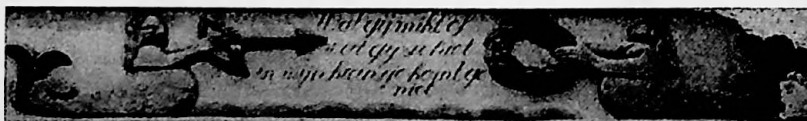 Wat gy mikt of
wat gy schiet
in myn krans ge komt ge
niet